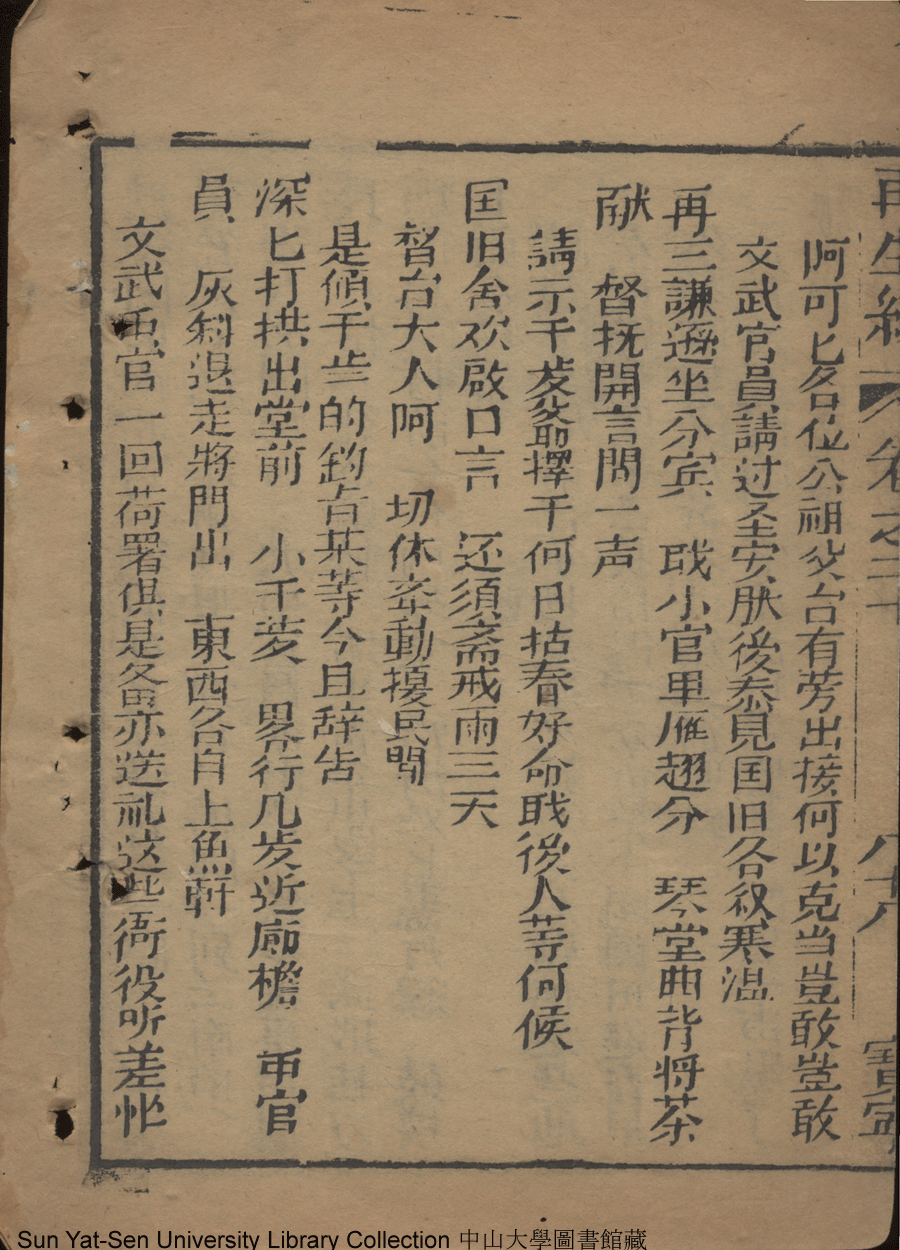 再生緣 卷之二十 八十八 寶寧
阿可匕各位公祖父台有劳出接何以克当豈敢豈敢
文武官員請过圣安 朕後叅見囯旧各叙寒温
再三謙遜坐分宾 戝小官卑雁翅分 琴堂曲背将茶
献 督抚開言問一声
請示千歲爺擇于何日拈香好命戝後人等伺候
囯旧舍欢啟口言 还須斎戒雨三天
督台大人阿 切休牵動擾民間
是領千歲的鈞旨某等今且辞告
深匕打拱出堂前 小千歲 畧行几步近廊檐 兩官
員 灰斜退走將門出 東西各自上魚軒
文武兩官一回荷署俱是备亦送礼这些衙役听差忙
Sun Yat-Sen University Library Collection 中山大學圖書館藏